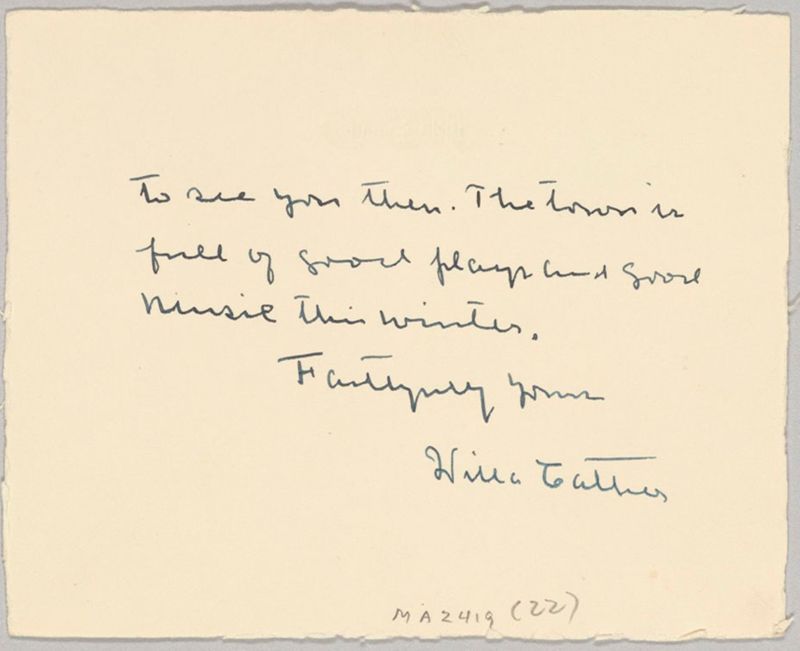 to see you then. The town is
full of good plays and good
music this winter.
Faithfully yours
Willa Cather
MA 2419 (22)